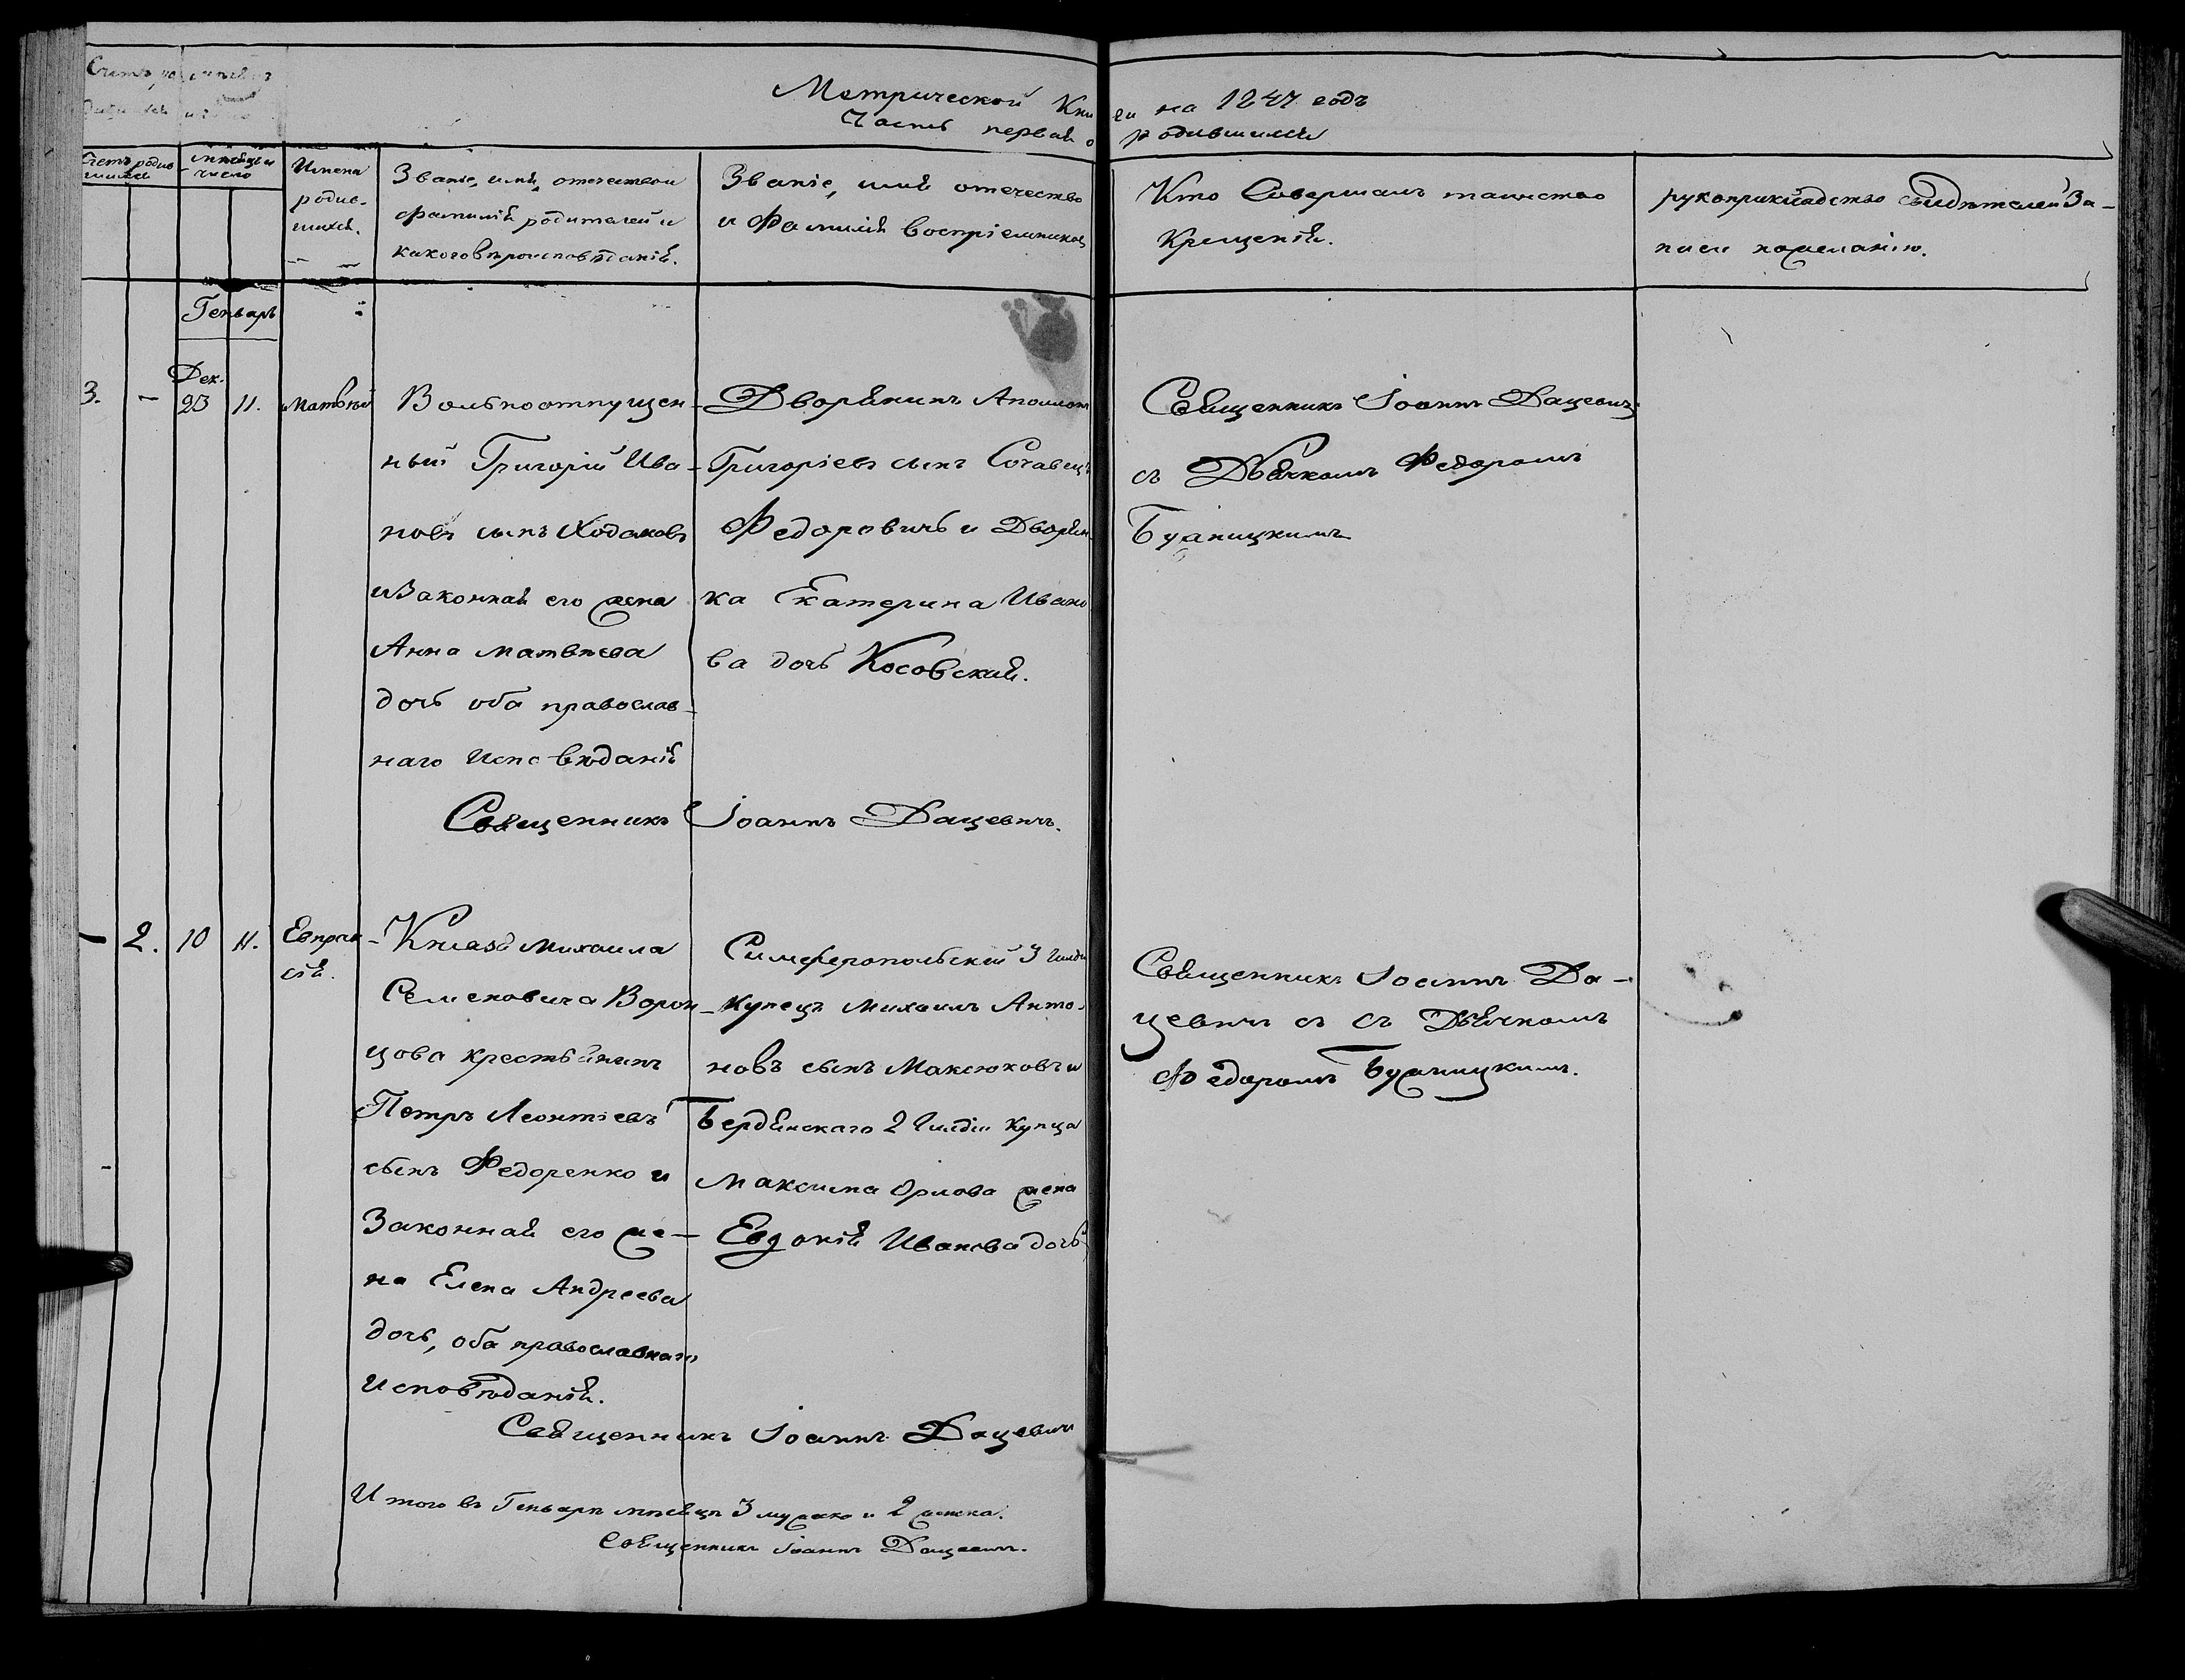 Метрической Книги на 1847 годъ
Часть первая о родившихся
Счетъ родившихся
Мѣсяцъ и число
Имена родившихся.
Званіе, имя, отечество и
фамилія родителей и
какого вѣроисповѣданія.
Званіе, имя отечество
и Фамилія воспріемниковъ
Кто Совершалъ таинство
Крещенія.
рукоприкладство свидѣтелей За-
писи по желанію.
Генварь
3. - Дек. 23 11. Матвѣй
Вольноотпущен-
ный Григорій Ива-
новъ сынъ Ходаковъ
и Законная его жена
Анна Матвѣева
дочь оба православ-
наго Исповѣданія
Дворянинъ Аполлонъ
Григоріевъ сынъ
Федоровичъ и Дворян
ка Екатерина Ивано
ва дочь Косовская.
Священникъ Іоаннъ Дацевичъ
съ Дьячкомъ Федоромъ
Буяницкимъ
Священникъ Іоаннъ Дацевичъ.
- 2. 10 11. Евпрак-
сія.
Князя Михаила
Семеновича Ворон-
цова крестьянинъ
Петръ Леонтіевъ
сынъ Федоренко и
Законная его же-
на Елена Андреева
дочь, оба православнаго
Исповѣданія.
Симферопольскій 3 Гилди
купецъ Михаилъ Анто-
новъ сынъ Максюковъ и
Бердянскаго 2 Гилдіи купца
Максима Орлова жена
Евдокія Иванова дочь
Священникъ Іоаннъ Да-
цевичъ съ съ Дьячкомъ
Федоромъ Буяницкимъ.
Священникъ Іоаннъ Дацевичъ
Итого въ Генварѣ мѣсяцѣ 3 мужска и 2 женска.
Священникъ Іоаннъ Дацевичъ.